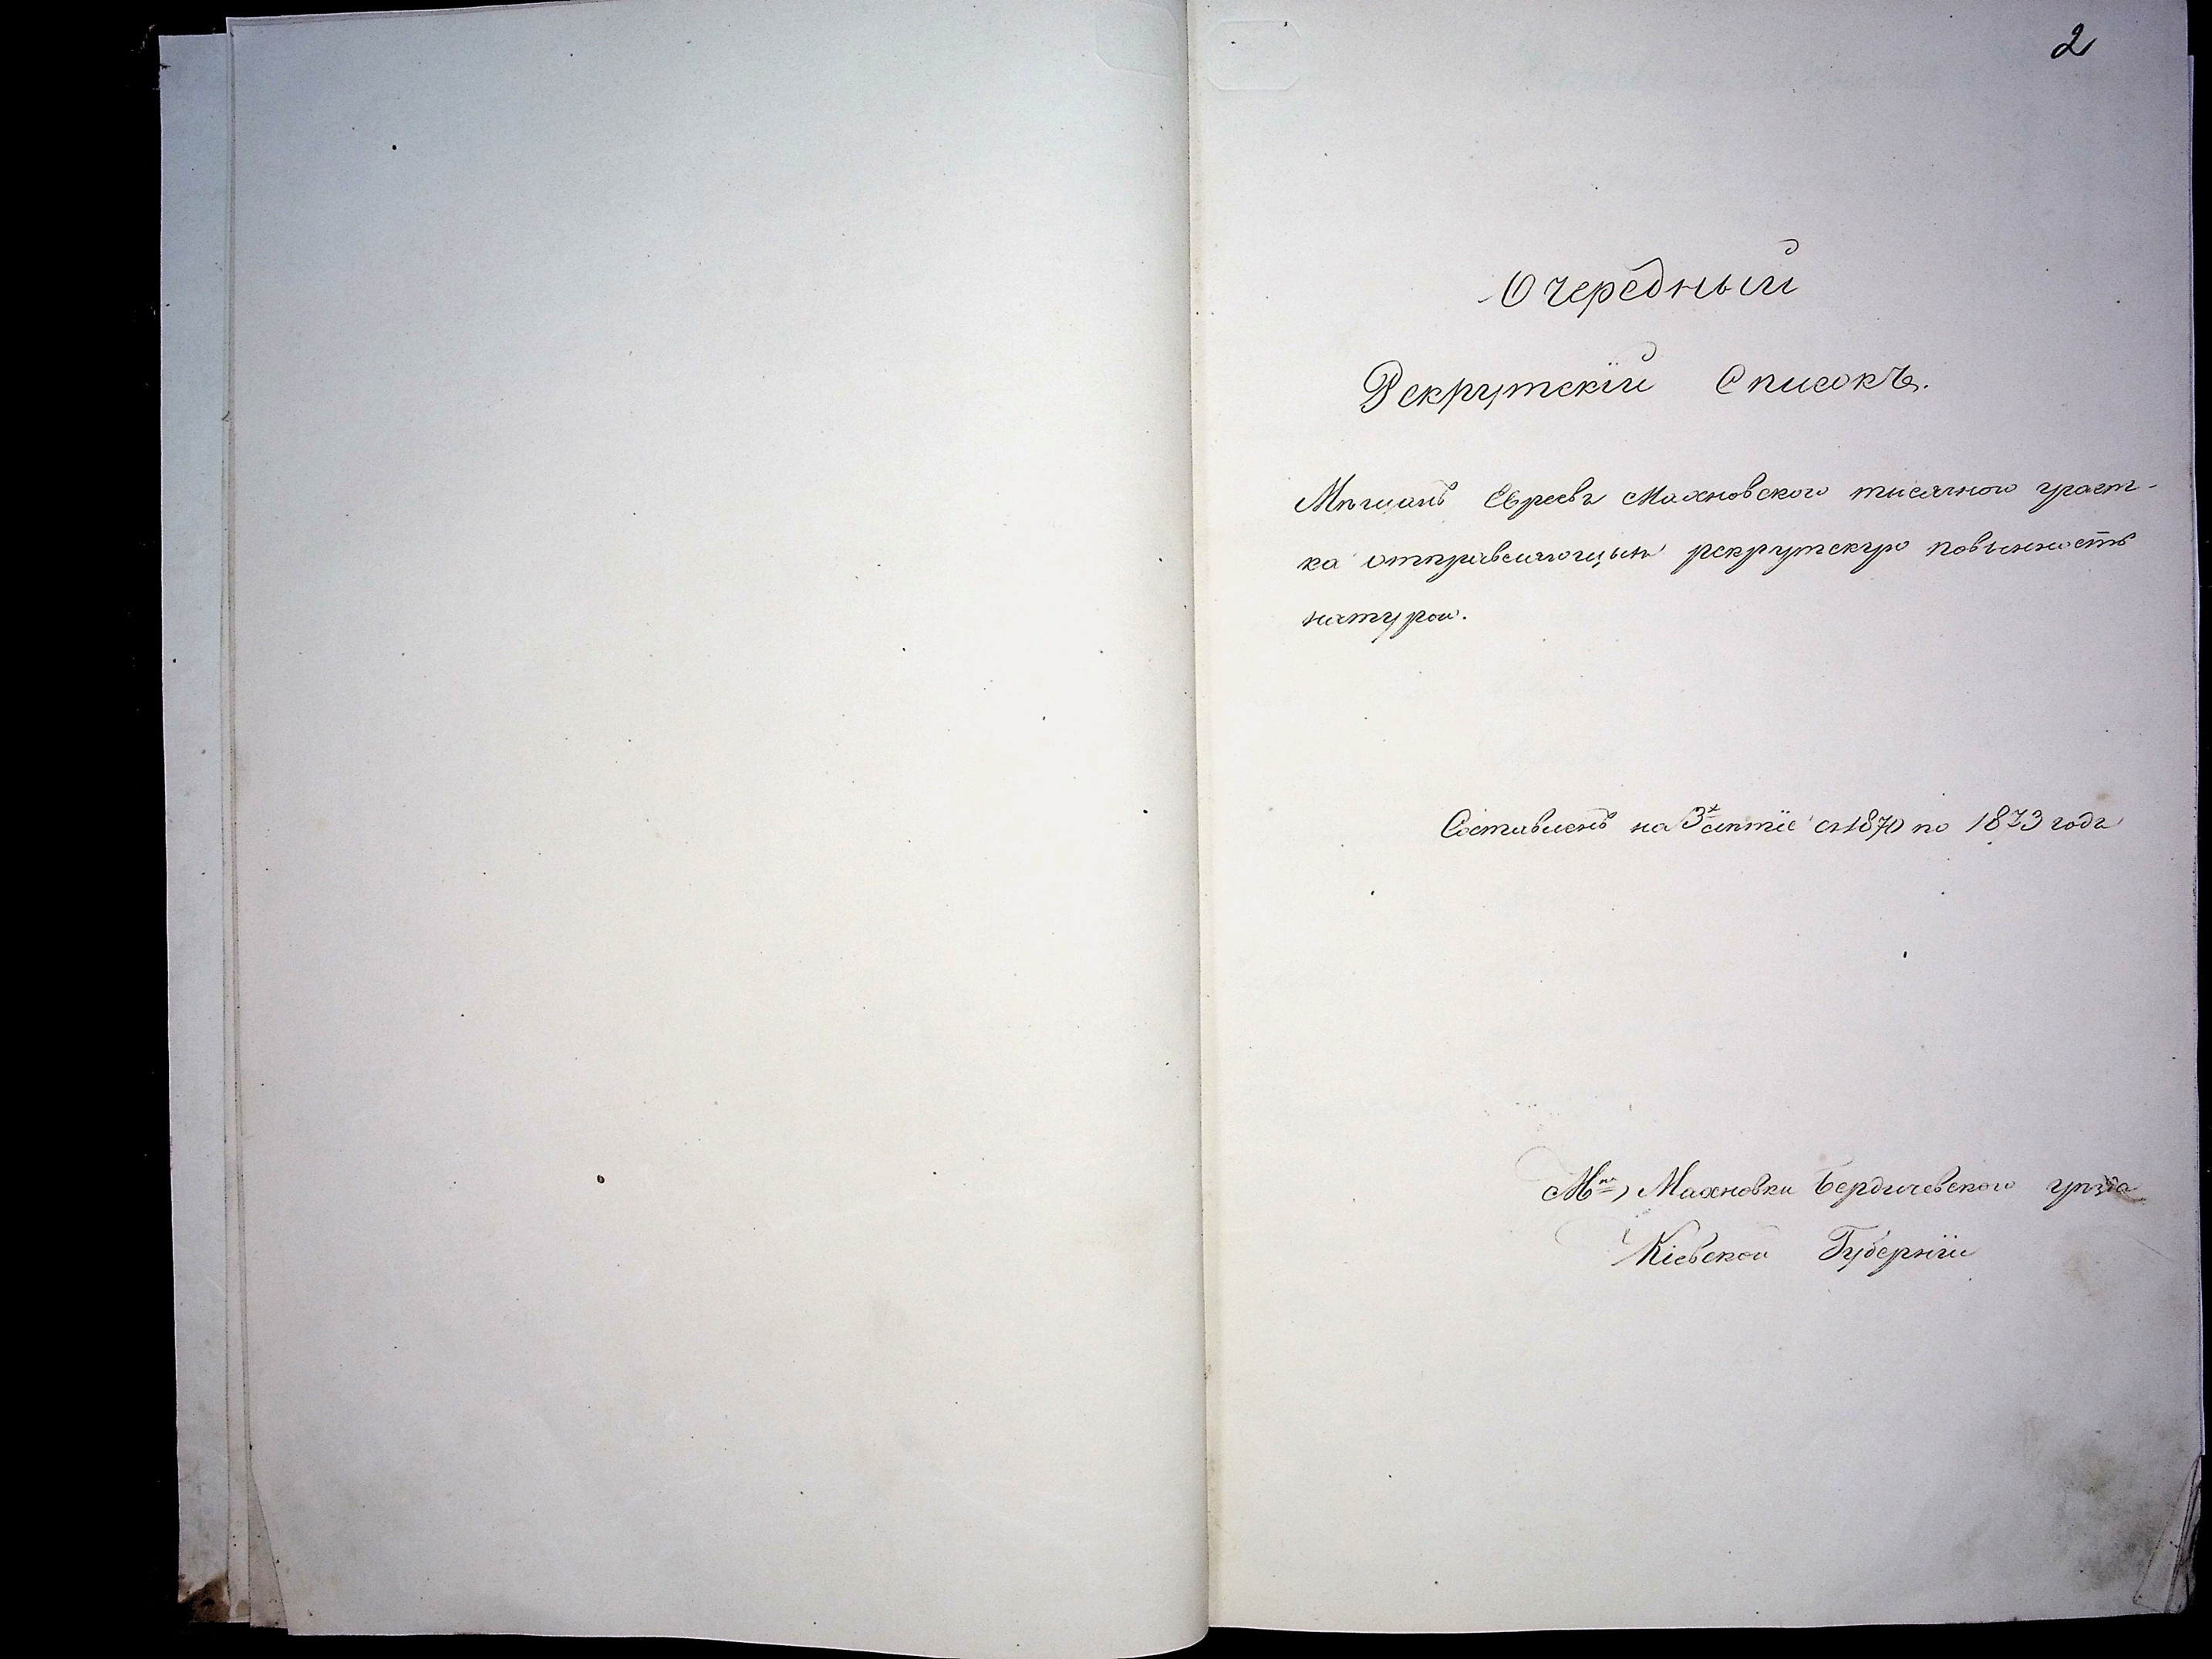 2
Очередный
Рекрутскій Списокъ.
Мѣщанъ Евреевъ Махновского тисячного участ-
ка отправляющыхъ рекрутскую повинность
натурою.
Составленъ на 3х лѣтіе съ 1870 по 1873 годъ
М-ко Махновки Бердичевского уѣзда
Кіевской Губерніи